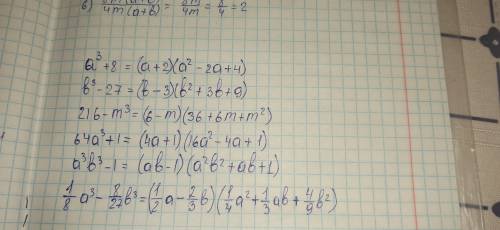 4m(a+b) = 4m = 4 = 2
a³+8 = (a+2)(a²-2a+4)
b³-27 = (b-3)(b²+3b+9)
216-m³ = (6-m)(36+6m+m²)
64a³+1 = (4a+1)(16a²-4a+1)
a³b³-1 = (ab-1)(a²b²+ab+1)
1/8 a³ - 8/27 b³ = (1/2 a - 2/3 b)(1/4 a² + 1/3 ab + 4/9 b²)